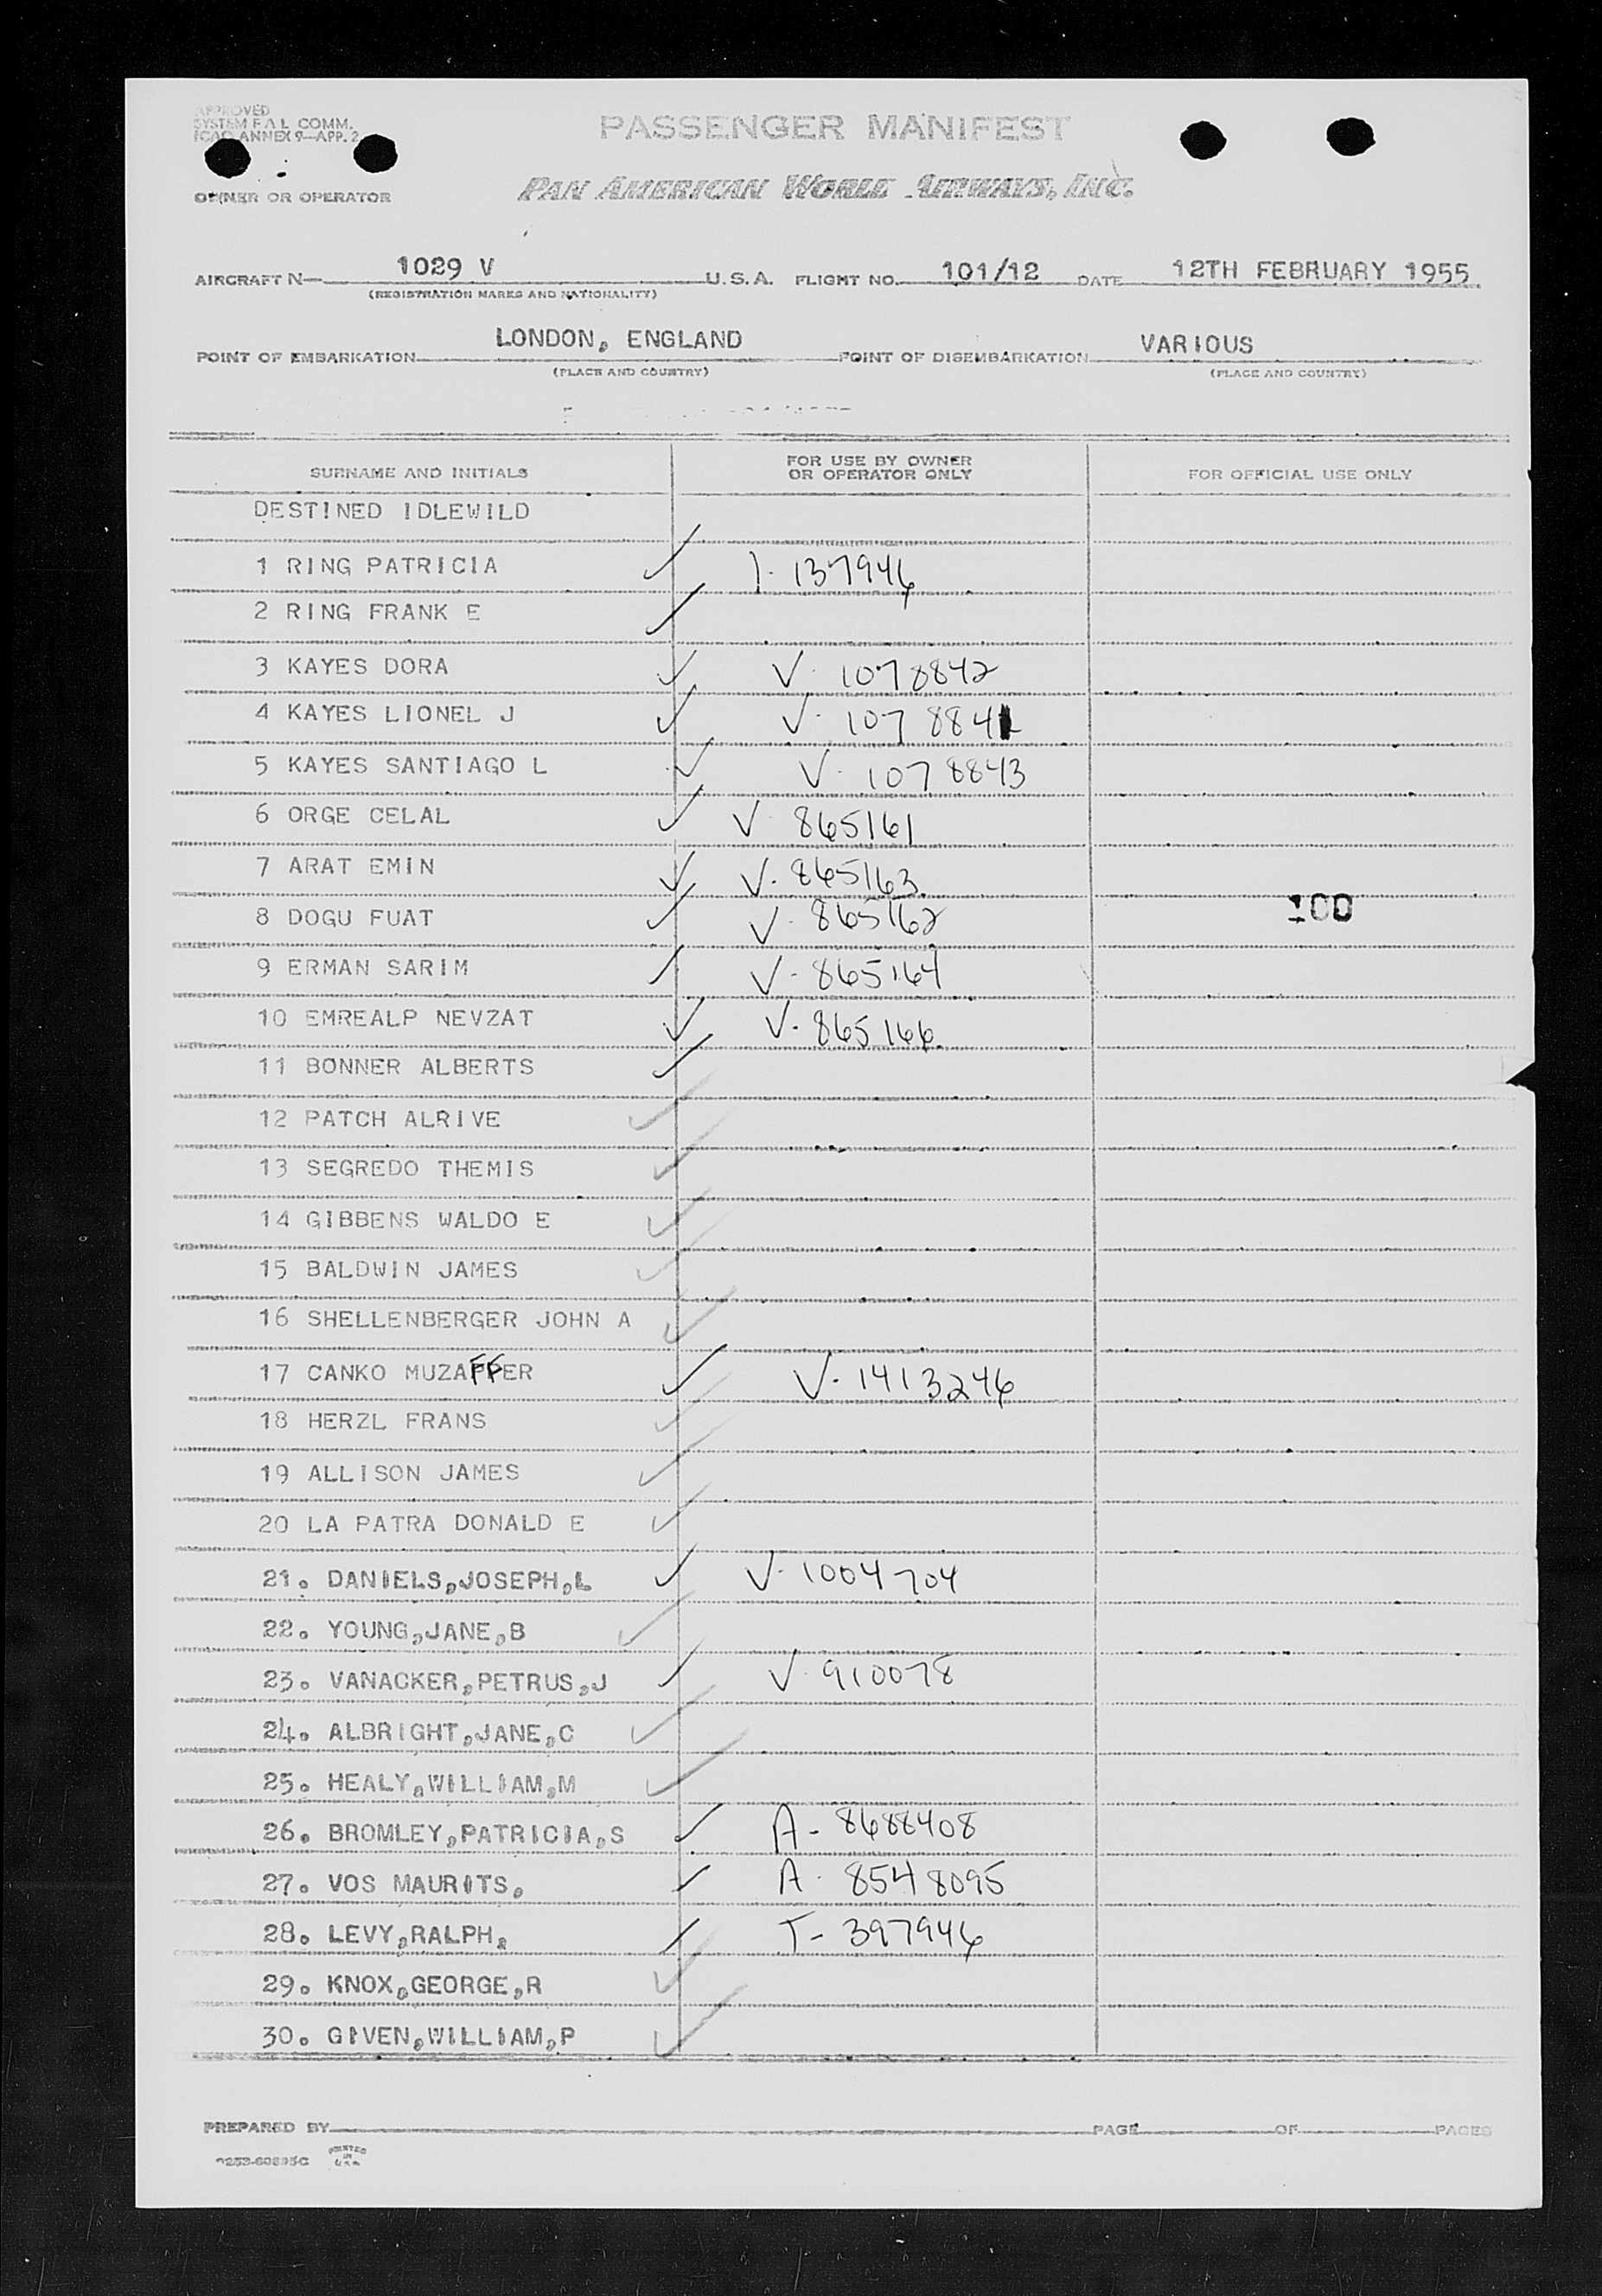 APPROVED
SYSTEM F.A.L. COMM.
ICAO ANNEX 9—APP. 2
PASSENGER MANIFEST
OWNER OR OPERATOR PAN AMERICAN WORLD AIRWAYS, INC.
AIRCRAFT N— 1029 V U.S.A. FLIGHT NO. 101/12 DATE 12TH FEBRUARY 1955
(REGISTRATION MARKS AND NATIONALITY)
POINT OF EMBARKATION LONDON, ENGLAND POINT OF DISEMBARKATION VARIOUS
(PLACE AND COUNTRY) (PLACE AND COUNTRY)
SURNAME AND INITIALS FOR USE BY OWNER OR OPERATOR ONLY FOR OFFICIAL USE ONLY
DESTINED IDLEWILD
1 RING PATRICIA 1- 137946
2 RING FRANK E
3 KAYES DORA V- 1078842
4 KAYES LIONEL J V- 1078841
5 KAYES SANTIAGO L V- 1078843
6 ORGE CELAL V 865161
7 ARAT EMIN V- 865163
8 DOGU FUAT V- 865162 100
9 ERMAN SARIM V- 865164
10 EMREALP NEVZAT V- 865166
11 BONNER ALBERTS
12 PATCH ALRIVE
13 SEGREDO THEMIS
14 GIBBENS WALDO E
15 BALDWIN JAMES
16 SHELLENBERGER JOHN A
17 CANKO MUZAFFER V- 1413246
18 HERZL FRANS
19 ALLISON JAMES
20 LA PATRA DONALD E
21. DANIELS,JOSEPH,L V- 1004704
22. YOUNG,JANE,B
23. VANACKER,PETRUS,J V- 910078
24. ALBRIGHT,JANE,C
25. HEALY,WILLIAM,M
26. BROMLEY,PATRICIA,S A- 8688408
27. VOS MAURITS, A- 8548095
28. LEVY,RALPH, T- 397946
29. KNOX,GEORGE,R
30. GIVEN,WILLIAM,P
PREPARED BY PAGE OF PAGES
PRINTED IN U.S.A.